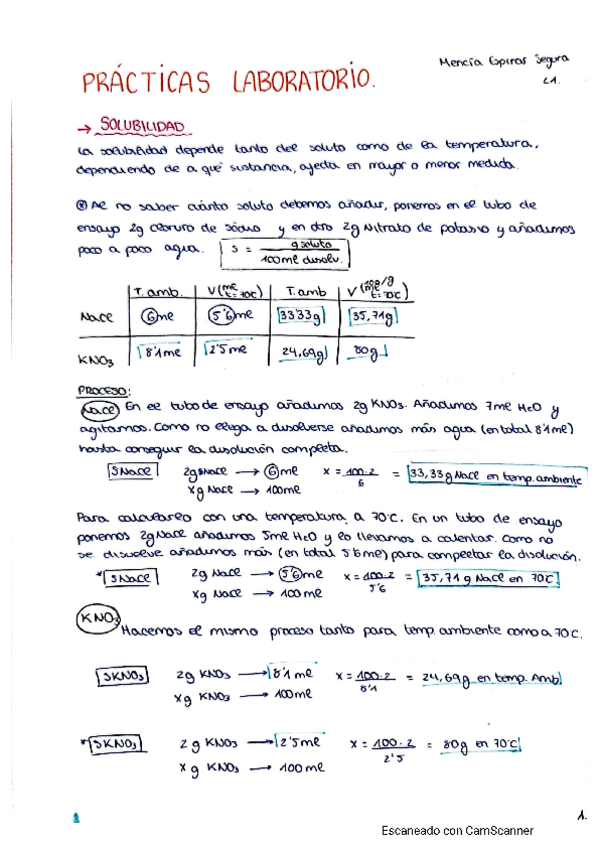 PRÁCTICAS LABORATORIO.
Mencía Espinar Segura
L1.
→ SOLUBILIDAD
La solubilidad depende tanto del soluto como de la temperatura,
dependiendo de a qué sustancia, afecta en mayor o menor medida.
Al no saber cuánto soluto debemos añadir, ponemos en el tubo de
ensayo 2g cloruro de sodio y en otro 2g Nitrato de potasio y añadimos
poco a poco agua. S = g soluto / 100ml disolv.
T. amb. V (ml t=70C) T. amb V (100/g ml t=70C)
NaCl 6ml 5'6ml 33'33g 35,71g
KNO3 8'1ml 2'5ml 24,69g 80g
PROCESO:
NaCl En el tubo de ensayo añadimos 2g KNO3. Añadimos 7ml H2O y
agitamos. Como no llega a disolverse añadimos más agua (en total 8'1ml)
hasta conseguir la disolución completa.
SNaCl 2g NaCl → 6ml x = 100·2 / 6 = 33,33g NaCl en temp. ambiente
xg NaCl → 100ml
Para calcularlo con una temperatura a 70°C. En un tubo de ensayo
ponemos 2g NaCl añadimos 5ml H2O y lo llevamos a calentar. Como no
se disuelve añadimos más (en total 5'6ml) para completar la disolución.
*SNaCl 2g NaCl → 5'6ml x = 100·2 / 5'6 = 35,71g NaCl en 70C
xg NaCl → 100ml
KNO3
Hacemos el mismo proceso tanto para temp. ambiente como a 70C.
SKNO3 2g KNO3 → 8'1ml x = 100·2 / 8'1 = 24,69g en temp. Amb
xg KNO3 → 100ml
*SKNO3 2g KNO3 → 2'5ml x = 100·2 / 2'5 = 80g en 70°C
xg KNO3 → 100ml
1
1.
Escaneado con CamScanner